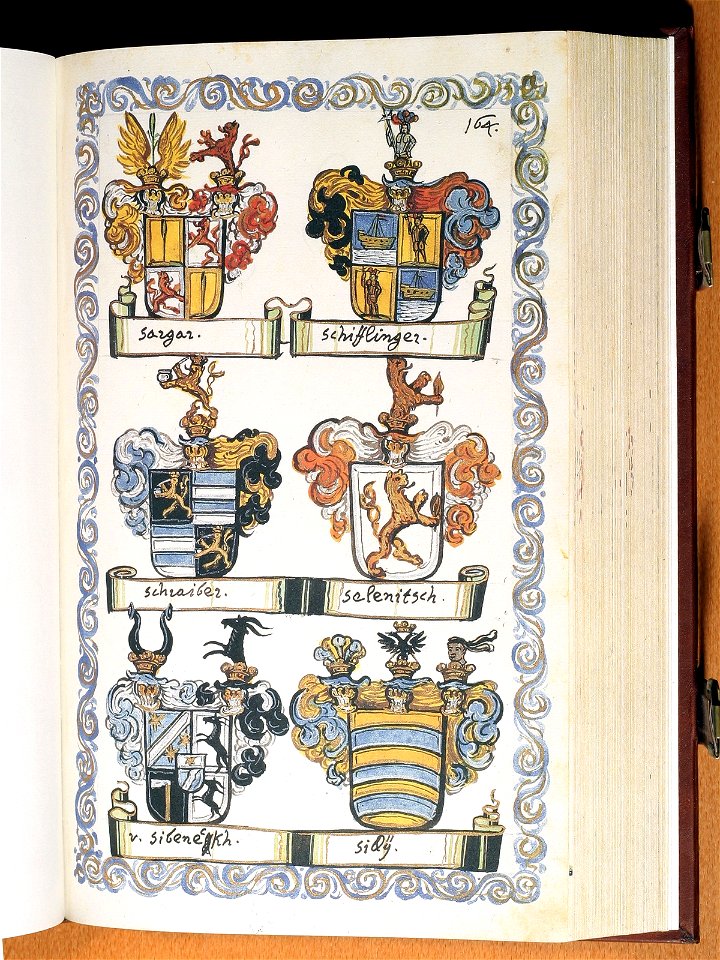 164.
sargar.
schifflinger.
schraiber.
selenitsch.
v. sibenekh.
silÿ.